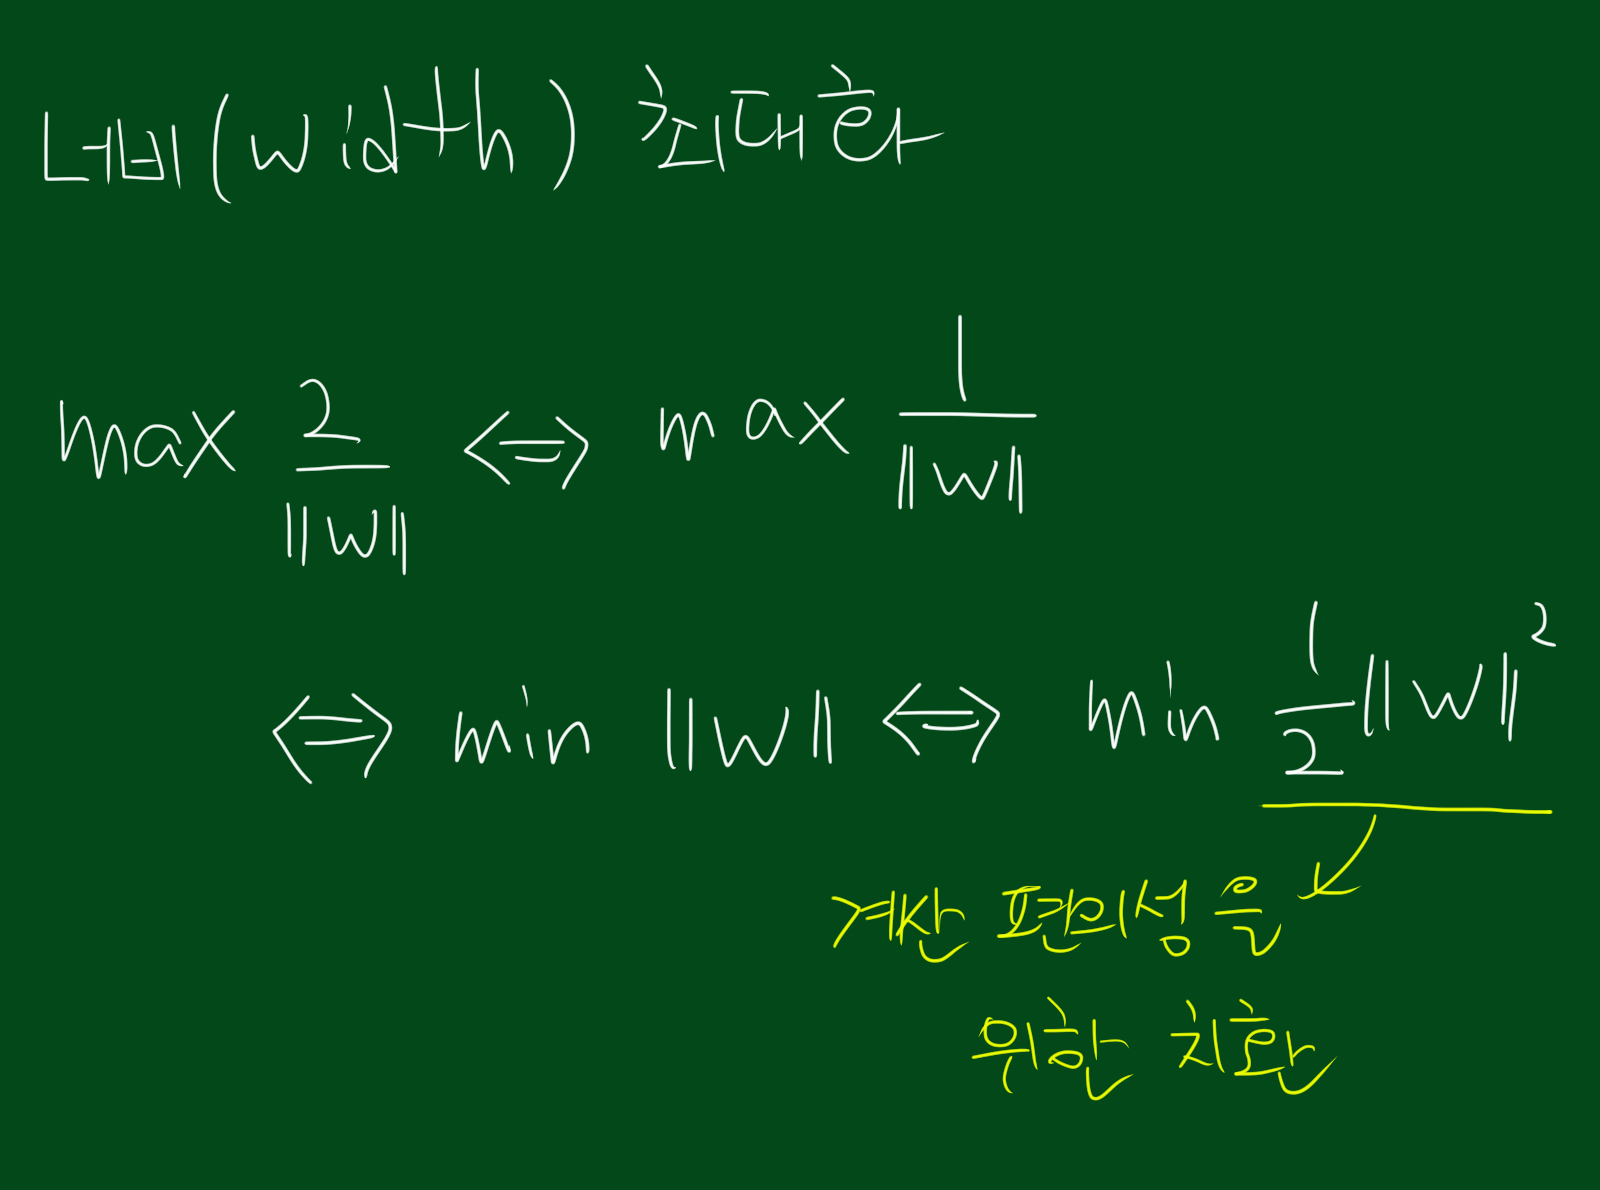 너비(width) 최대화
max 2/||w|| <=> max 1/||w||
<=> min ||w|| <=> min 1/2 ||w||²
계산 편의성을
위한 치환